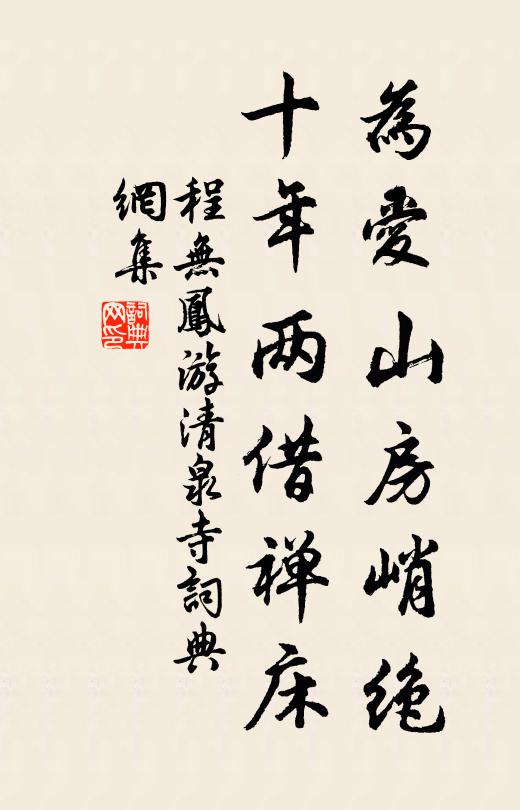 為愛山房峭绝
十年两借禅床
程無鳳游清泉寺詞典
網集
詞典
网印